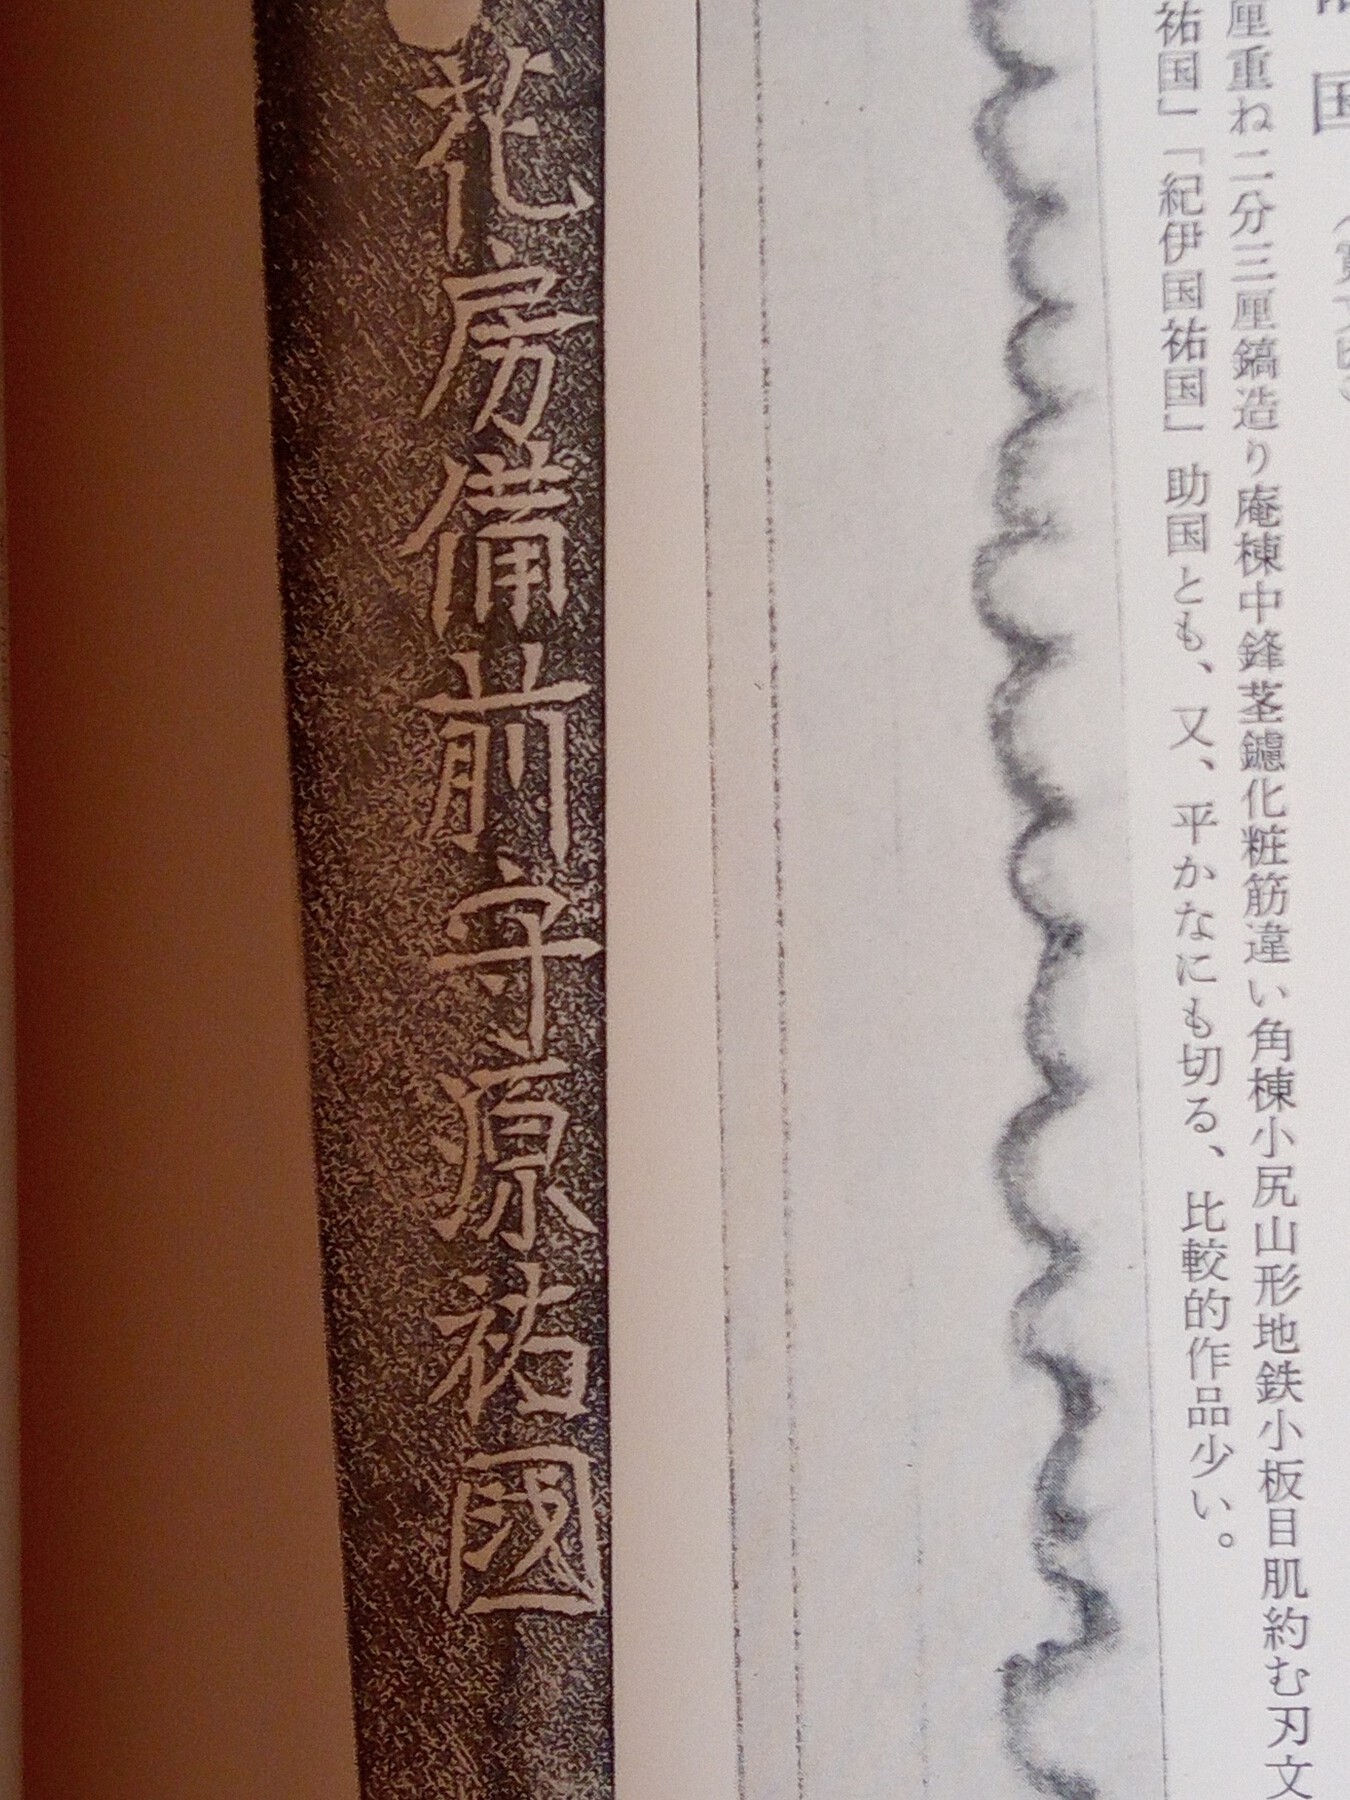 国
厘重ね二分三厘鎬造り庵棟中鋒茎鑢化粧筋違い角棟小尻山形地鉄小板目肌約む刃文
祐国」「紀伊国祐国」助国とも、又、平かなにも切る、比較的作品少い。
花房備前守源祐國